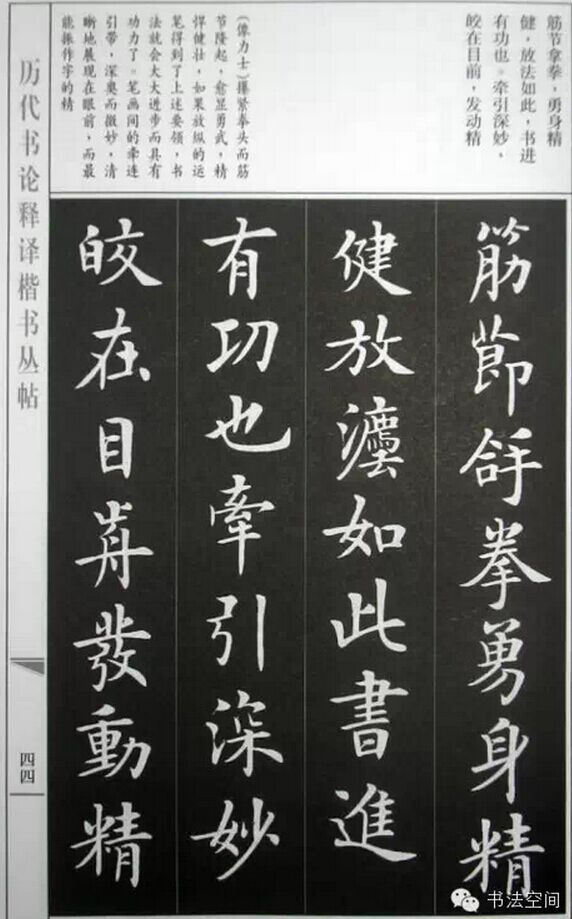 筋节拿拳，勇身精
健，放法如此，书进
有功也。牵引深妙，
皎在目前，发动精
（像力士）攥紧拳头而筋
节隆起，愈显勇武，精
悍健壮，如果放纵的运
笔得到了上述要领，书
法就会大大进步而具有
功力了。笔画间的牵连
引带，深奥而微妙，清
晰地展现在眼前，而最
能振作字的精
筋節拿拳勇身精
健放灋如此書進
有功也牽引深妙
皎在目前發動精
历代书论释译楷书丛帖
四四
书法空间